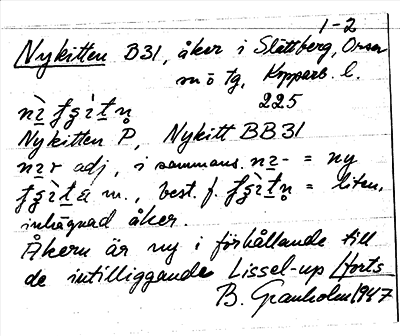 1-2
Nykitten B31, åker i Slättberg, Orsa
sn o tg, Kopparb. l.
225
Nykitten P, Nykitt BB31
adj, i sammans. = ny
m., best. f. = liten,
inhägnad åker.
Åkern är ny i förhållande till
de intilliggande Lissel-up /forts
B. Granholm 1947